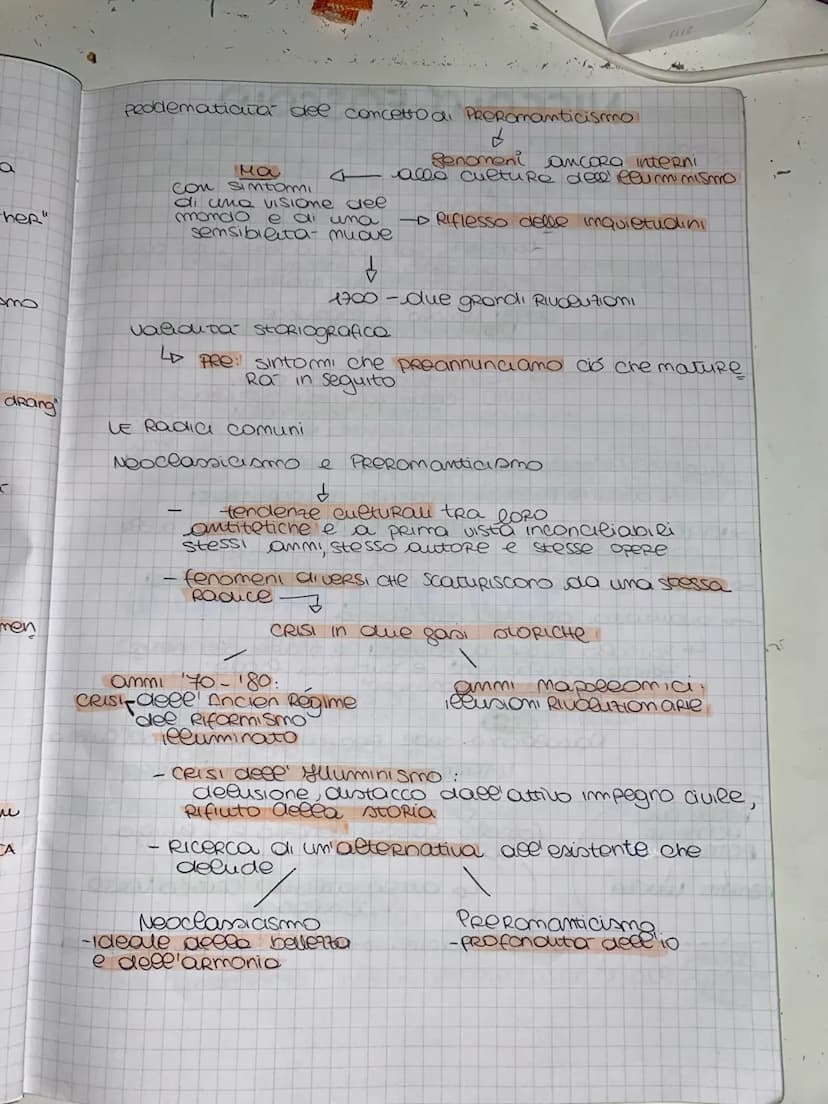 a
her"
smo
drang"
men
CA
Problematicità del concetto di PREROMANTICISMO
fenomeni ancora interni
alla cultura dell'illuminismo
MA
con sintomi
di una visione del
mondo e di una
sensibilità nuove
→ Riflesso delle inquietudini
1700 - due grandi RIVOLUZIONI
Validità STORIOGRAFICA
PRE: sintomi che preannunciano ciò che mature
rà in seguito
LE RADICI COMUNI
NEOCLASSICISMO e PREROMANTICISMO
- tendenze culturali tra loro
antitetiche e a prima vista inconciliabili
stessi anni, stesso autore e stesse opere
- fenomeni diversi che scaturiscono da una stessa
RADICE
CRISI in due fasi STORICHE
anni '70-'80:
CRISI dell'Ancien Régime
del RIFORMISMO
illuminato
anni napoleonici:
illusioni RIVOLUZIONARIE
- CRISI dell'Illuminismo:
delusione, distacco dall'attivo impegno civile,
rifiuto della STORIA
- RICERCA di un'alternativa all'esistente che
delude
Neoclassicismo
-ideale della bellezza
e dell'armonia
PREROMANTICISMO
-PROFONDITÀ dell'io